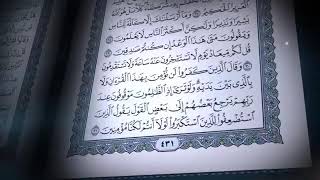 ٱلْعَزِيزُ ٱلْحَكِيمُ ٢٧ وَمَآ أَرْسَلْنَٰكَ إِلَّا كَآفَّةً لِّلنَّاسِ
بَشِيرًا وَنَذِيرًا وَلَٰكِنَّ أَكْثَرَ ٱلنَّاسِ لَا يَعْلَمُونَ ٢٨
وَيَقُولُونَ مَتَىٰ هَٰذَا ٱلْوَعْدُ إِن كُنتُمْ صَٰدِقِينَ ٢٩
قُل لَّكُم مِّيعَادُ يَوْمٍ لَّا تَسْتَـْٔخِرُونَ عَنْهُ سَاعَةً وَلَا تَسْتَقْدِمُونَ ٣٠
وَقَالَ ٱلَّذِينَ كَفَرُوا۟ لَن نُّؤْمِنَ بِهَٰذَا ٱلْقُرْءَانِ وَلَا
بِٱلَّذِى بَيْنَ يَدَيْهِ وَلَوْ تَرَىٰٓ إِذِ ٱلظَّٰلِمُونَ مَوْقُوفُونَ عِندَ
رَبِّهِمْ يَرْجِعُ بَعْضُهُمْ إِلَىٰ بَعْضٍ ٱلْقَوْلَ يَقُولُ ٱلَّذِينَ
ٱسْتُضْعِفُوا۟ لِلَّذِينَ ٱسْتَكْبَرُوا۟ لَوْلَآ أَنتُمْ لَكُنَّا مُؤْمِنِينَ ٣١
٤٣١